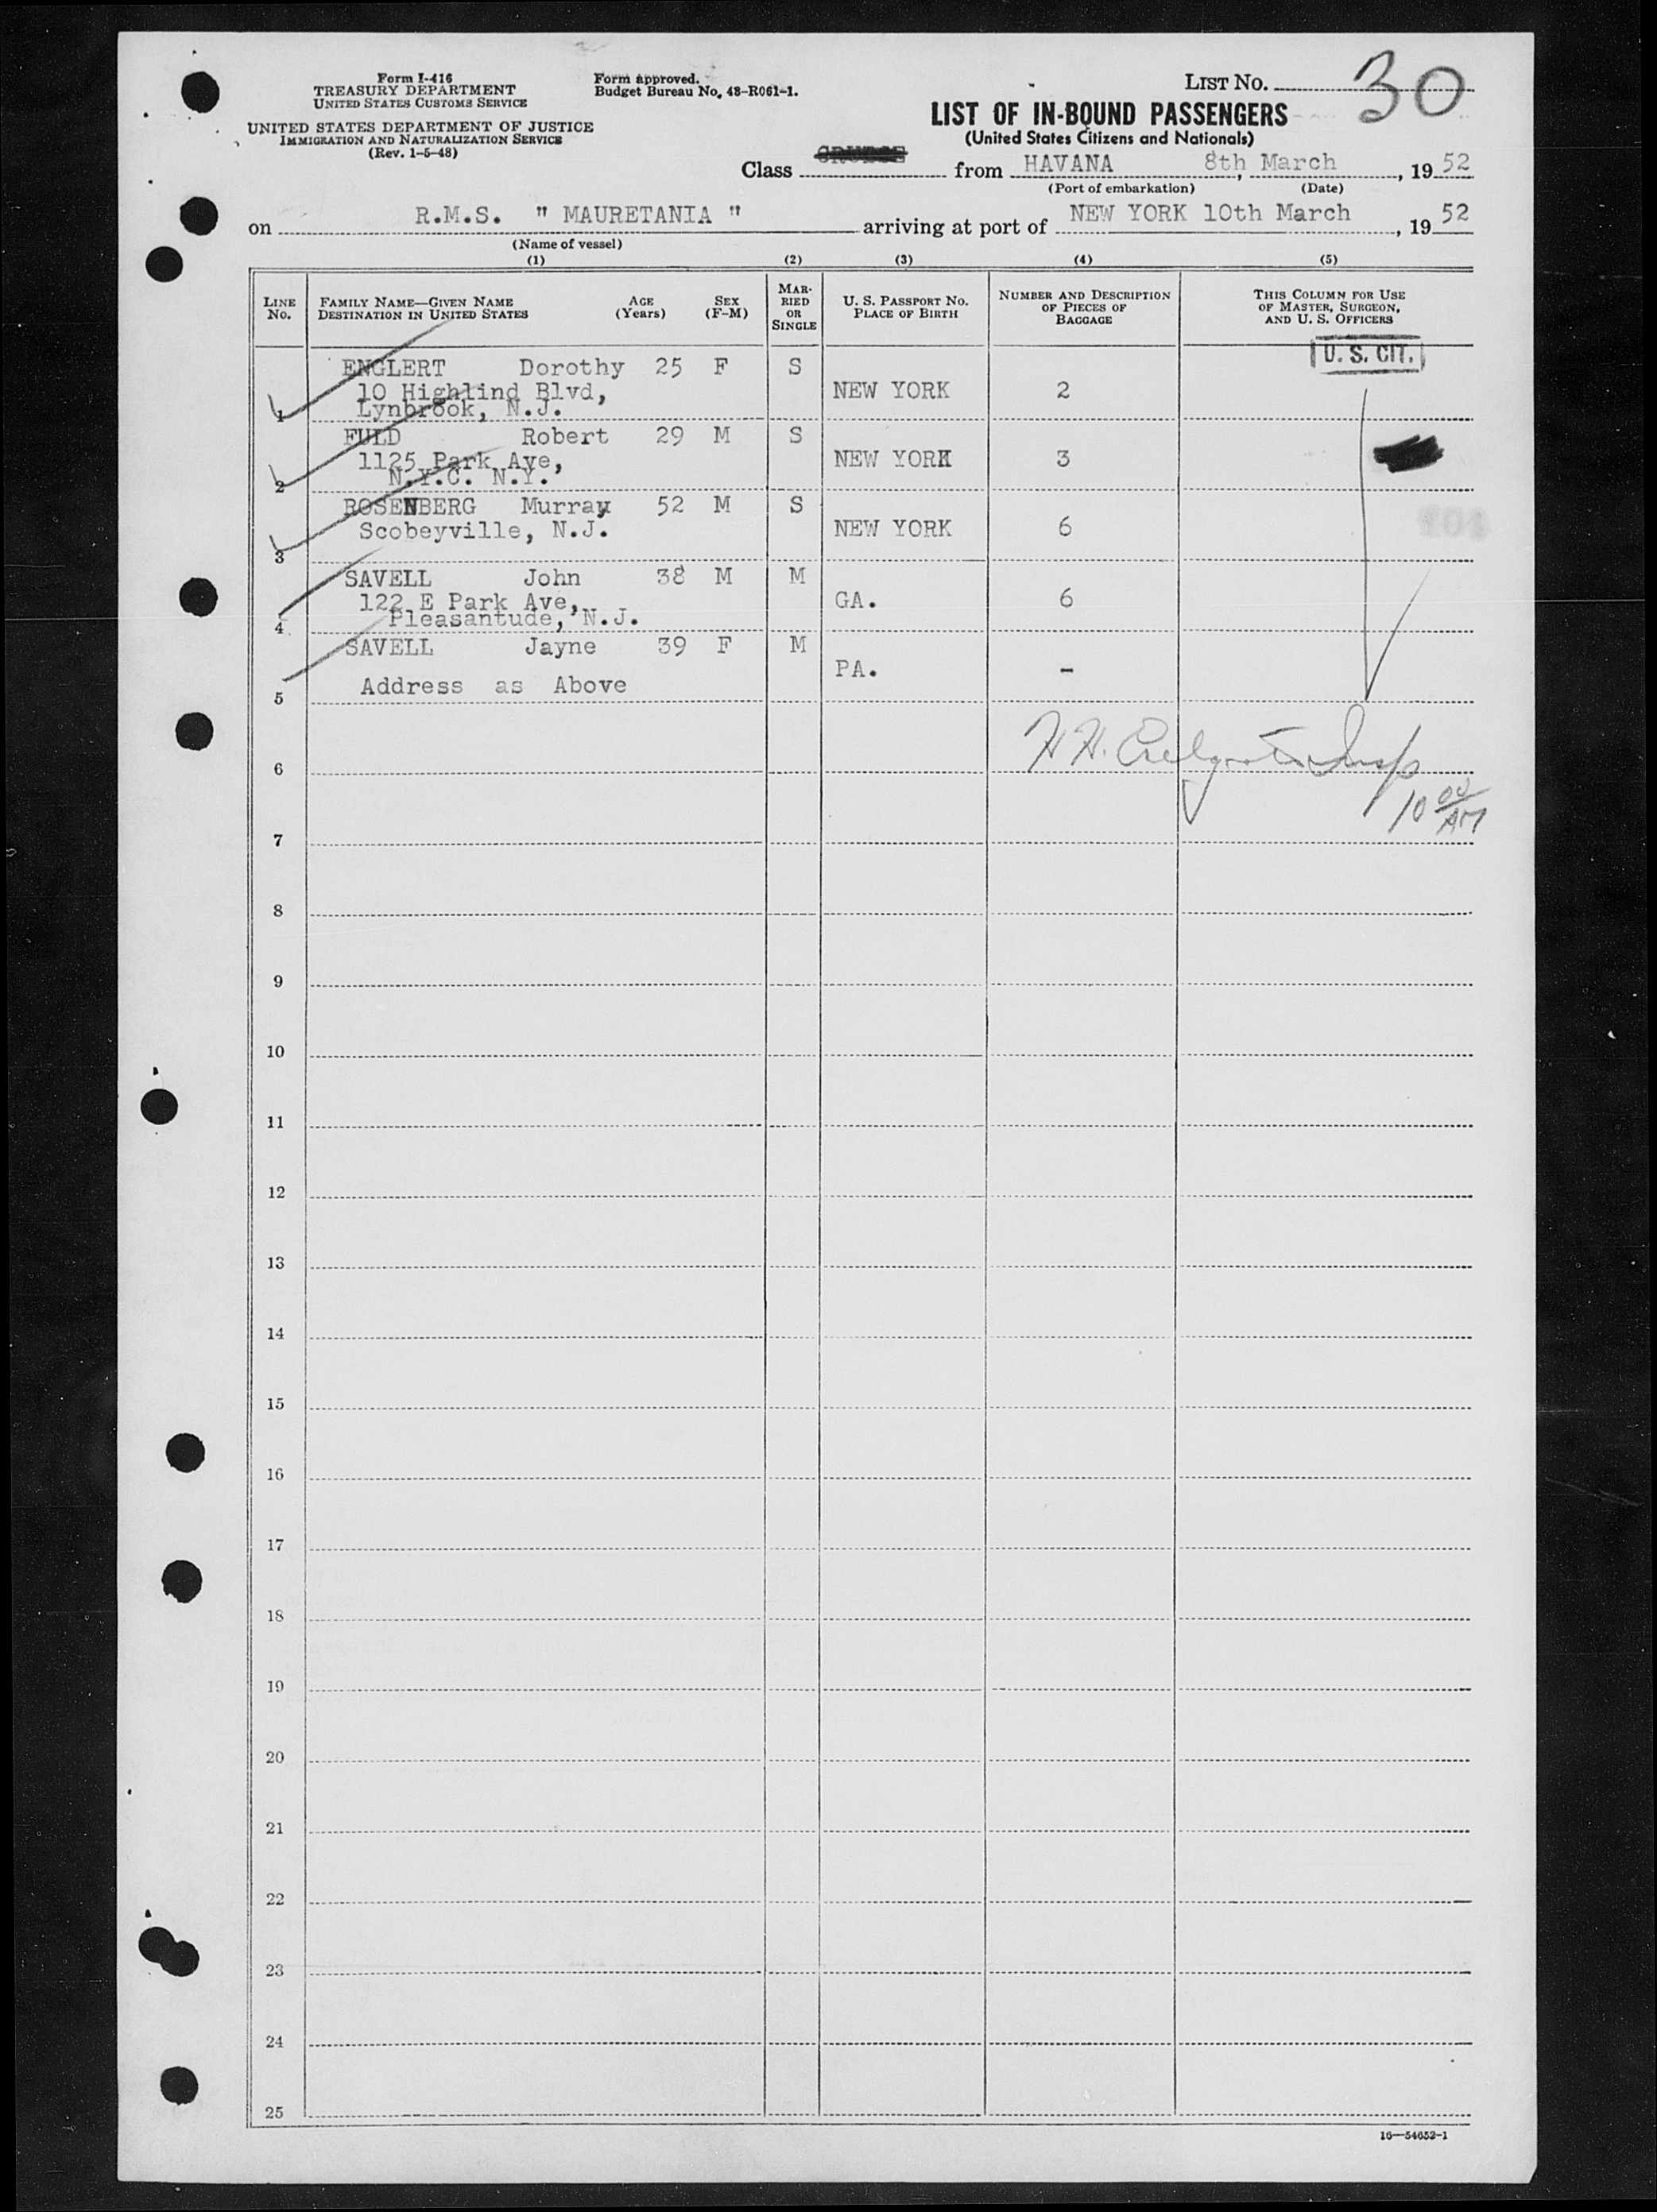 Form I-416
TREASURY DEPARTMENT
UNITED STATES CUSTOMS SERVICE
UNITED STATES DEPARTMENT OF JUSTICE
IMMIGRATION AND NATURALIZATION SERVICE
(Rev. 1-5-48)
Form approved.
Budget Bureau No. 48-R061-1.
LIST NO. 30
LIST OF IN-BOUND PASSENGERS
(United States Citizens and Nationals)
Class from HAVANA 8th March, 1952
(Port of embarkation) (Date)
on R.M.S. " MAURETANIA " arriving at port of NEW YORK 10th March, 1952
(Name of vessel)
(1) (2) (3) (4) (5)
LINE No. FAMILY NAME—GIVEN NAME DESTINATION IN UNITED STATES AGE (Years) SEX (F-M) MARRIED OR SINGLE U. S. PASSPORT NO. PLACE OF BIRTH NUMBER AND DESCRIPTION OF PIECES OF BAGGAGE THIS COLUMN FOR USE OF MASTER, SURGEON, AND U. S. OFFICERS
U. S. CIT.
ENGLERT Dorothy 25 F S
10 Highlind Blvd, NEW YORK 2
1 Lynbrook, N.J.
FULD Robert 29 M S
1125 Park Ave, NEW YORK 3
2 N.Y.C. N.Y.
ROSENBERG Murray 52 M S
Scobeyville, N.J. NEW YORK 6
3
SAVELL John 38 M M
122 E Park Ave, GA. 6
4 Pleasantude, N.J.
SAVELL Jayne 39 F M
PA. -
5 Address as Above
H. H. Insp
6
10 00 AM
7
8
9
10
11
12
13
14
15
16
17
18
19
20
21
22
23
24
25
16—54652-1